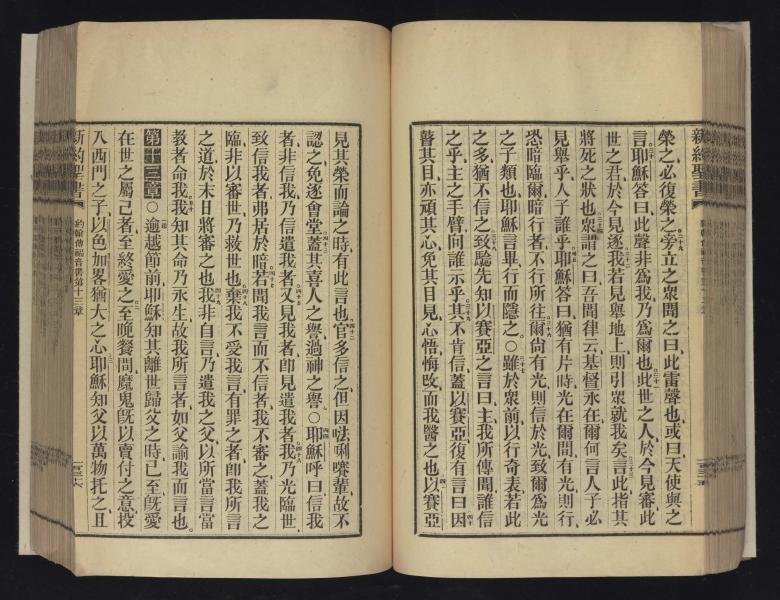 新約聖書
榮之必復榮之旁立之衆聞之曰此雷聲也或曰天使與之
言耶穌答曰此聲非爲我乃爲爾也此世之人於今見審此
世之君於今見逐我若見舉地上則引衆就我矣言此指其
將死之狀也衆謂之曰吾聞律云基督永在爾何言人子必
見舉乎人子誰乎耶穌答曰猶有片時光在爾間有光則行
恐暗臨爾暗行者不行所往爾尙有光則信於光致爾爲光
之子類也耶穌言畢行而隱之○雖於衆前以行奇表若此
之多猶不信之致驗先知以賽亞之言曰主我所傳聞誰信
之乎主之手臂向誰示乎其不肯信蓋以賽亞復有言曰因
瞽其目亦頑其心免其目見心悟悔改而我醫之也以賽亞
見其榮而論之時有此言也官多信之但因𠵽唎㗭輩故不
認之免逐會堂蓋其喜人之譽過神之譽○耶穌呼曰信我
者非信我乃信遣我者又見我者卽見遣我者我乃光臨世
致信我者弗居於暗若聞我言而不信者我不審之蓋我之
臨非以審世乃救世也棄我不受我言有罪之者卽我所言
之道於末日將審之也我非自言乃遣我之父以所當言當
教者命我我知其命乃永生故我所言者如父諭我而言也
第十三章○逾越節前耶穌知其離世歸父之時已至旣愛
在世之屬己者至終愛之至晚餐間魔鬼旣以賣付之意投
入西門之子以色加畧猶大之心耶穌知父以萬物托之且
新約聖書
約翰傳福音書第十三章